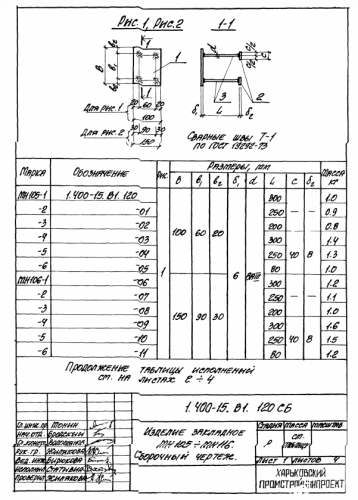 Рис. 1, Рис. 2
1-1
Для рис. 1
20 60 20
100
Для рис. 2
30 90 30
150
Сварные швы Т-1
по ГОСТ 13292-73
Марка Обозначение Рис Размеры, мм Масса кг
В В₁ В₂ δ₁ d L С δ₂
МН105-1 1.400-15.В1.120 1 100 60 20 6 300 — — 1.0
-2 -01 250 — — 0.9
-3 -02 200 0.8
-4 -03 300 1.4
-5 -04 250 40 8 1.3
-6 -05 80 1.0
МН106-1 -06 150 90 30 300 1.2
-2 -07 250 — — 1.1
-3 -08 200 1.0
-4 -09 300 1.6
-5 -10 250 40 8 1.5
-6 -11 80 1.2
Продолжение таблицы исполнений
см. на листах 2÷4
1.400-15.В1.120 СБ
Изделие закладное
МН105÷МН116.
Сборочный чертеж.
Стадия Масса Масштаб
Р см. табл.
Лист 1 Листов 4
Харьковский
Промстройниипроект